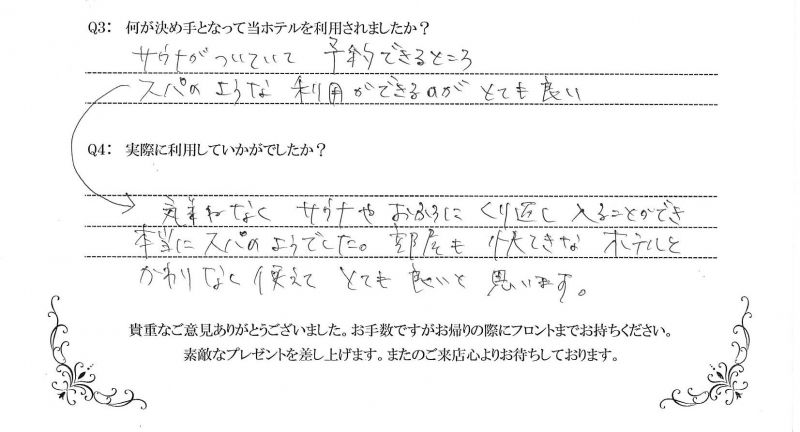 Q3: 何が決め手となって当ホテルを利用されましたか？
サウナがついていて 予約できるところ
スパのような 利用ができるのが とても良い
Q4: 実際に利用していかがでしたか？
気兼ねなく サウナや おふろに くり返し 入ることができ
本当にスパのようでした。部屋も すてきな ホテルと
かわりなく使えて とても 良いと 思います。
貴重なご意見ありがとうございました。お手数ですがお帰りの際にフロントまでお持ちください。
素敵なプレゼントを差し上げます。またのご来店心よりお待ちしております。